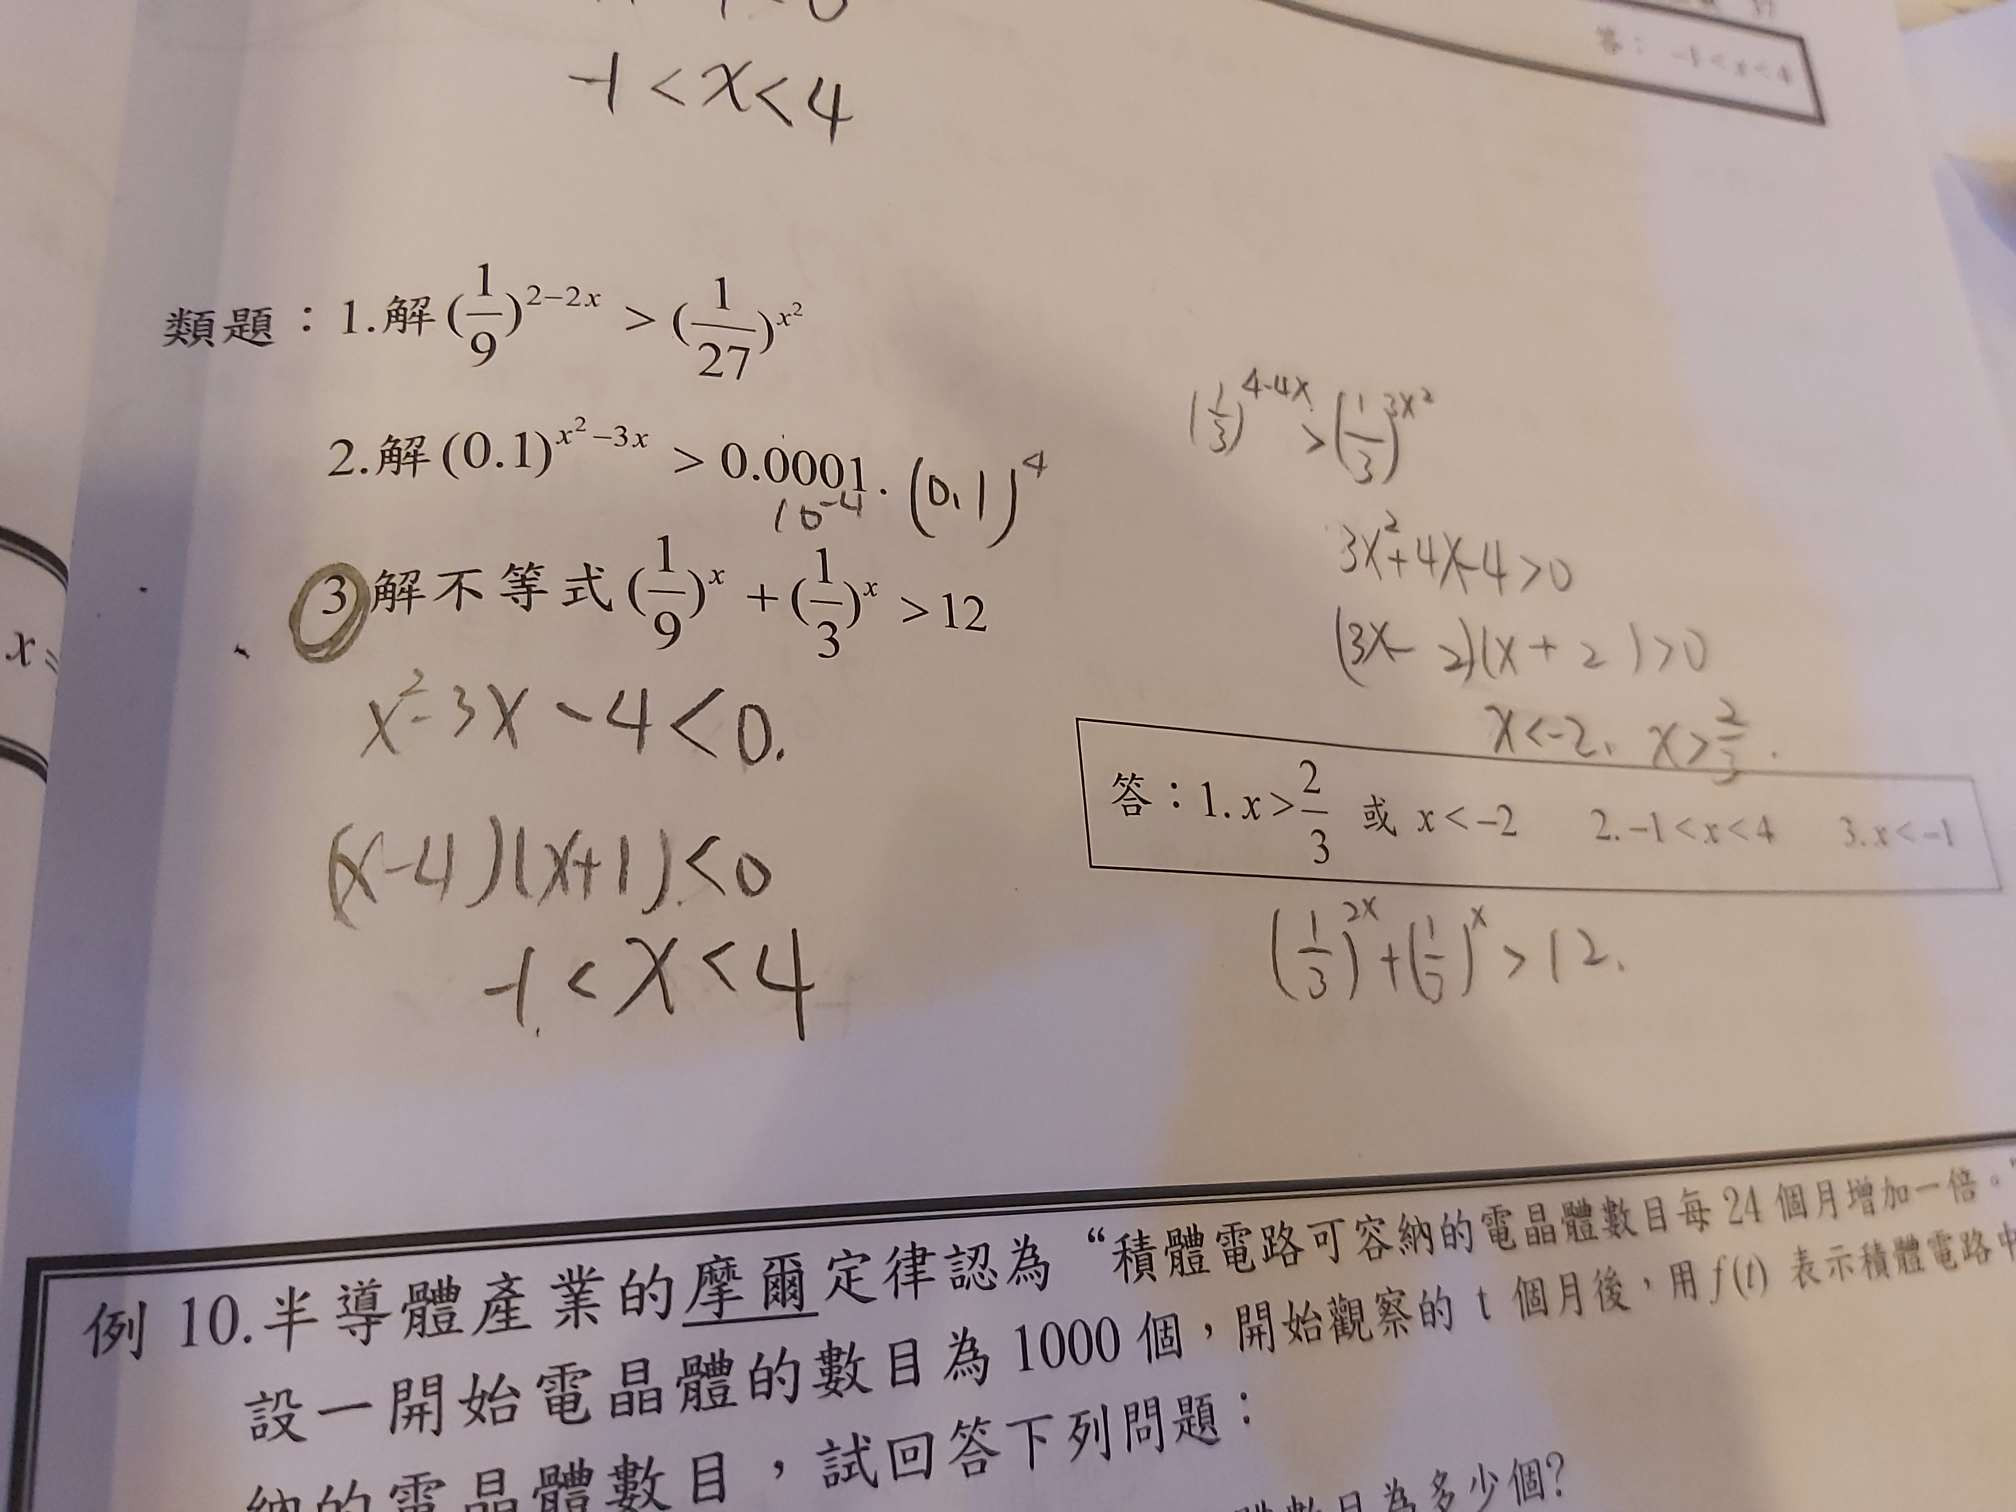 -1 < x < 4
答： -1 < x < 4
類題：1.解 (1/9)^{2-2x} > (1/27)^{x^2}
2.解 (0.1)^{x^2-3x} > 0.0001. (0.1)^4
10^{-4}
3 解不等式 (1/9)^x + (1/3)^x > 12
x^2-3x-4<0.
(x-4)(x+1)<0
-1 < x < 4
(1/3)^{4-4x} > (1/3)^{3x^2}
3x^2+4x-4>0
(3x-2)(x+2)>0
x<-2, x>2/3.
答：1. x > 2/3 或 x < -2 2. -1 < x < 4 3. x < -1
(1/3)^{2x}+(1/3)^x > 12.
x=
例 10.半導體產業的摩爾定律認為“積體電路可容納的電晶體數目每 24 個月增加一倍。”
設一開始電晶體的數目為 1000 個，開始觀察的 t 個月後，用 f(t) 表示積體電路中
納的電晶體數目，試回答下列問題：
體數目為多少個?